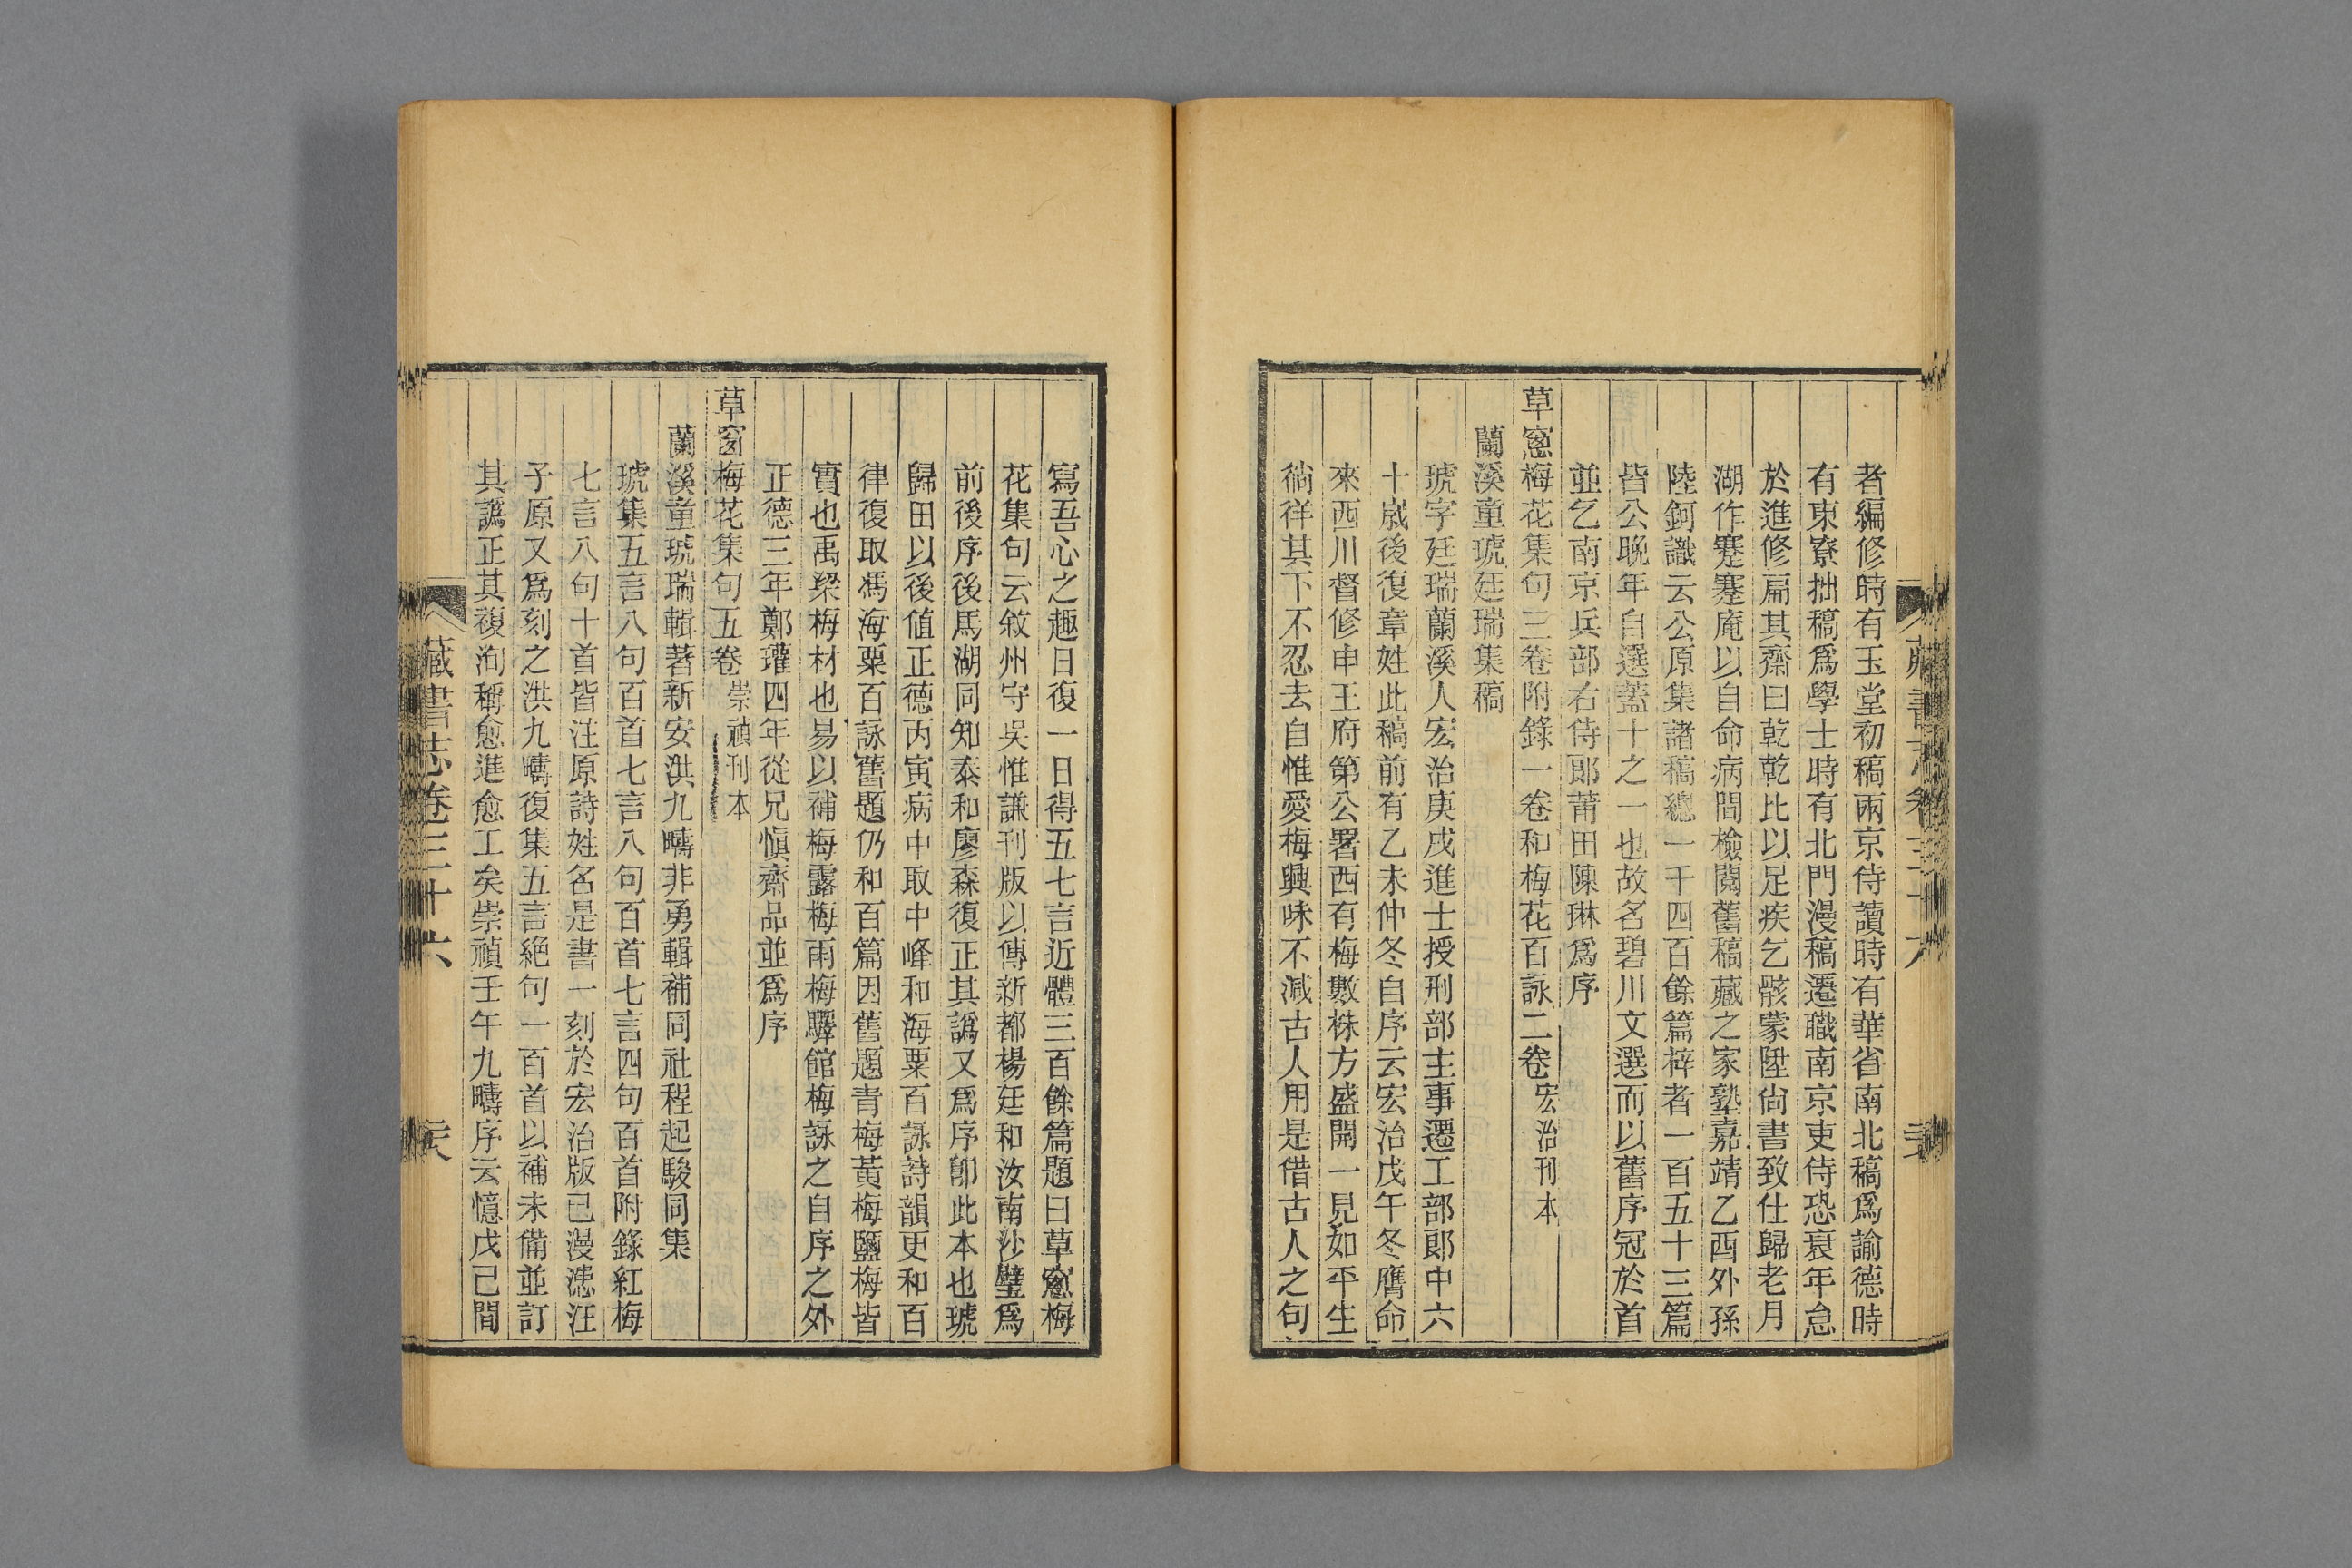 藏書志卷三十六
者編修時有玉堂初稿兩京侍讀時有華省南北稿爲諭德時
有東寮拙稿爲學士時有北門漫稿遷職南京吏侍恐衰年怠
於進修扁其齋曰乾乾比以足疾乞骸蒙陞尙書致仕歸老月
湖作蹇蹇庵以自命病間檢閱舊稿藏之家塾嘉靖乙酉外孫
陸鈳識云公原集諸稿總一千四百餘篇梓者一百五十三篇
皆公晚年自選蓋十之一也故名碧川文選而以舊序冠於首
並乞南京兵部右侍郎莆田陳琳爲序
草窻梅花集句三卷附錄一卷和梅花百詠二卷宏治刊本
蘭溪童琥廷瑞集稿
琥字廷瑞蘭溪人宏治庚戌進士授刑部主事遷工部郎中六
十歲後復章姓此稿前有乙未仲冬自序云宏治戊午冬膺命
來西川督修申王府第公署西有梅數株方盛開一見如平生
徜徉其下不忍去自惟愛梅興味不減古人用是借古人之句
寫吾心之趣日復一日得五七言近體三百餘篇題曰草窻梅
花集句云敘州守吳惟謙刊版以傳新都楊廷和汝南沙璧爲
前後序後馬湖同知泰和廖森復正其譌又爲序卽此本也琥
歸田以後値正德丙寅病中取中峰和海粟百詠詩韻更和百
律復取馮海粟百詠舊題仍和百篇因舊題青梅黃梅鹽梅皆
實也禹梁梅材也易以補梅露梅雨梅驛館梅詠之自序之外
正德三年鄭瓘四年從兄愼齋品並爲序
草窗梅花集句五卷崇禎刊本
蘭溪童琥瑞輯著新安洪九疇非勇輯補同社程起駿同集
琥集五言八句百首七言八句百首七言四句百首附錄紅梅
七言八句十首皆注原詩姓名是書一刻於宏治版已漫漶汪
子原又爲刻之洪九疇復集五言絕句一百首以補未備並訂
其譌正其複洵稱愈進愈工矣崇禎壬午九疇序云憶戊己間
藏書志卷三十六